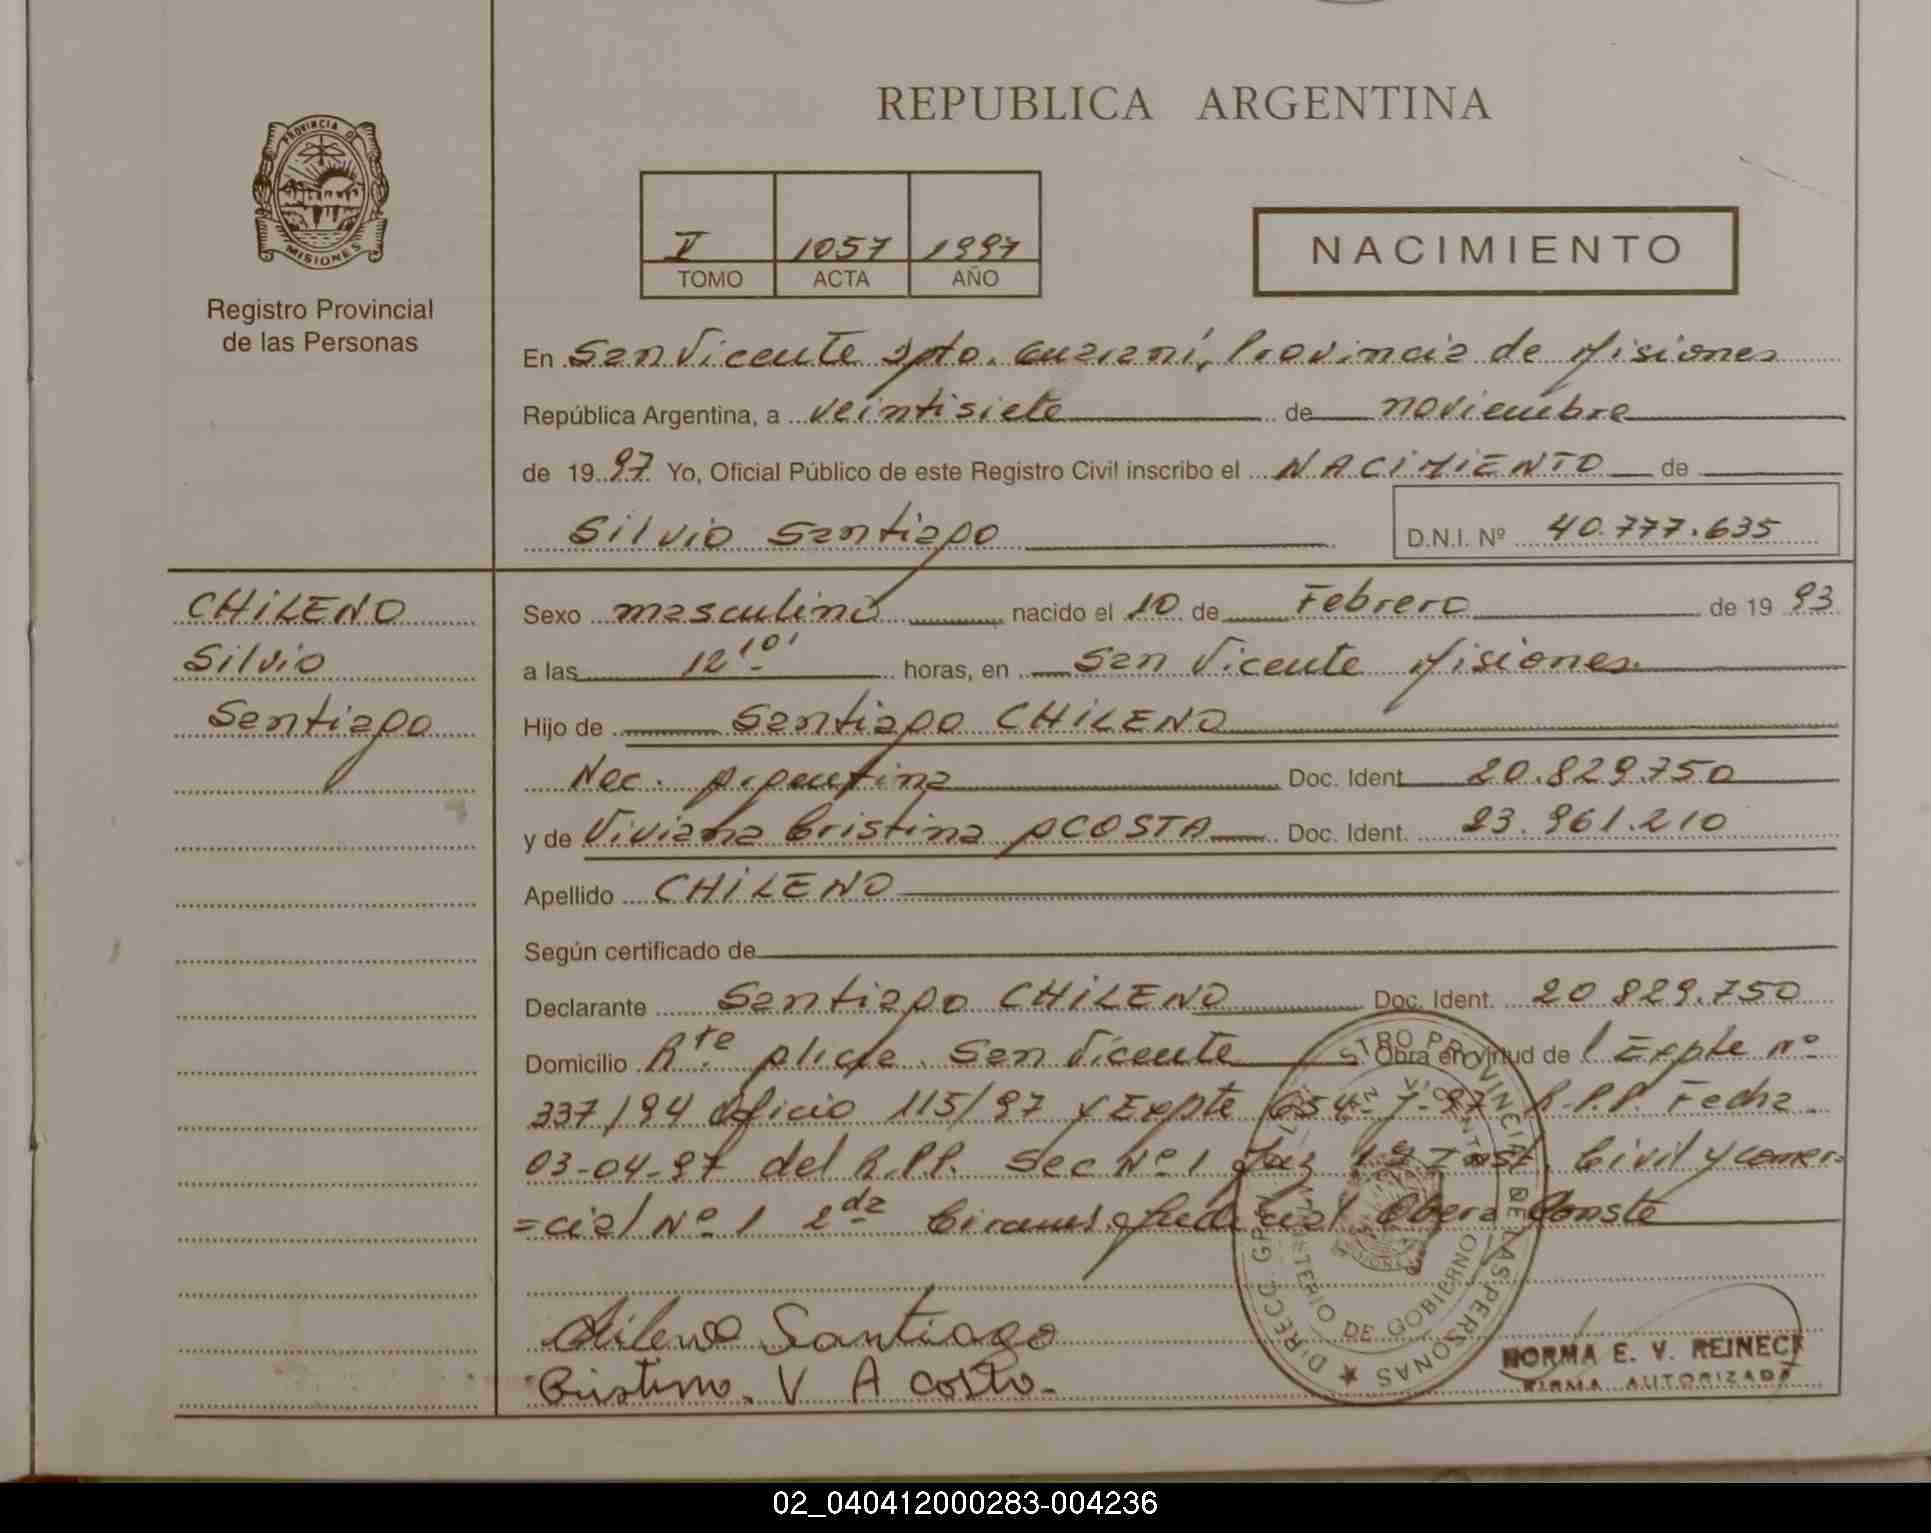 REPUBLICA ARGENTINA
PROVINCIA DE
MISIONES
Registro Provincial
de las Personas
V 1057 1997
TOMO ACTA AÑO
NACIMIENTO
En San Vicente Dpto. Guaraní, Provincia de Misiones
República Argentina, a veintisiete de noviembre
de 19 97 Yo, Oficial Público de este Registro Civil inscribo el NACIMIENTO de
Silvio Santiago D.N.I. Nº 40.777.635
CHILENO
Silvio
Santiago
Sexo masculino nacido el 10 de Febrero de 19 93
a las 12 10' horas, en San Vicente Misiones.
Hijo de Santiago CHILENO
Nac. Argentina Doc. Ident. 20.829.750
y de Viviana Cristina ACOSTA Doc. Ident. 23.961.210
Apellido CHILENO
Según certificado de
Declarante Santiago CHILENO Doc. Ident. 20 829.750
Domicilio Rte Alicia. San Vicente Obra en virtud de l Expte Nº
337/94 Oficio 115/97 y Expte 654-7-97 R.P.P. Fecha
03-04-97 del R.P.P. Sec Nº 1 Juz 1ª Inst. Civil y comer=
=cial Nº 1 2da Circuns. Judicial Oberá Conste
Chileno Santiago
Cristina. V Acosta.
DIRECC. GRAL.
STRO PROVINCIAL DE LAS PERSONAS
MINISTERIO DE GOBIERNO
NORMA E. V. REINECK
FIRMA AUTORIZADA
02_040412000283-004236